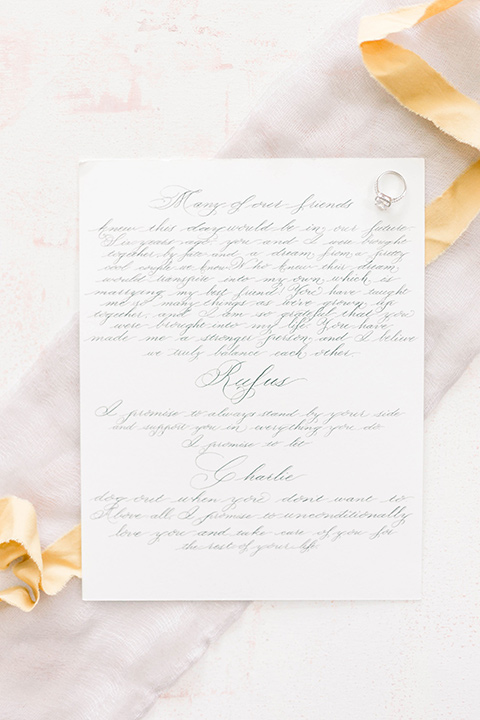 Many of our friends
knew this day would be in our future.
Six years ago, you and I were brought
together by fate and a dream from a pretty
cool couple we knew. Who knew this dream
would transpire into my own which is
marrying my best friend. You have taught
me so many things as we've grown up
together, and I am so grateful that you
were brought into my life. You have
made me a stronger person and I believe
we truly balance each other.
Rufus
I promise to always stand by your side
and support you in everything you do
I promise to let
Charlie
dog out when you don't want to
Above all, I promise to unconditionally
love you and take care of you for
the rest of your life